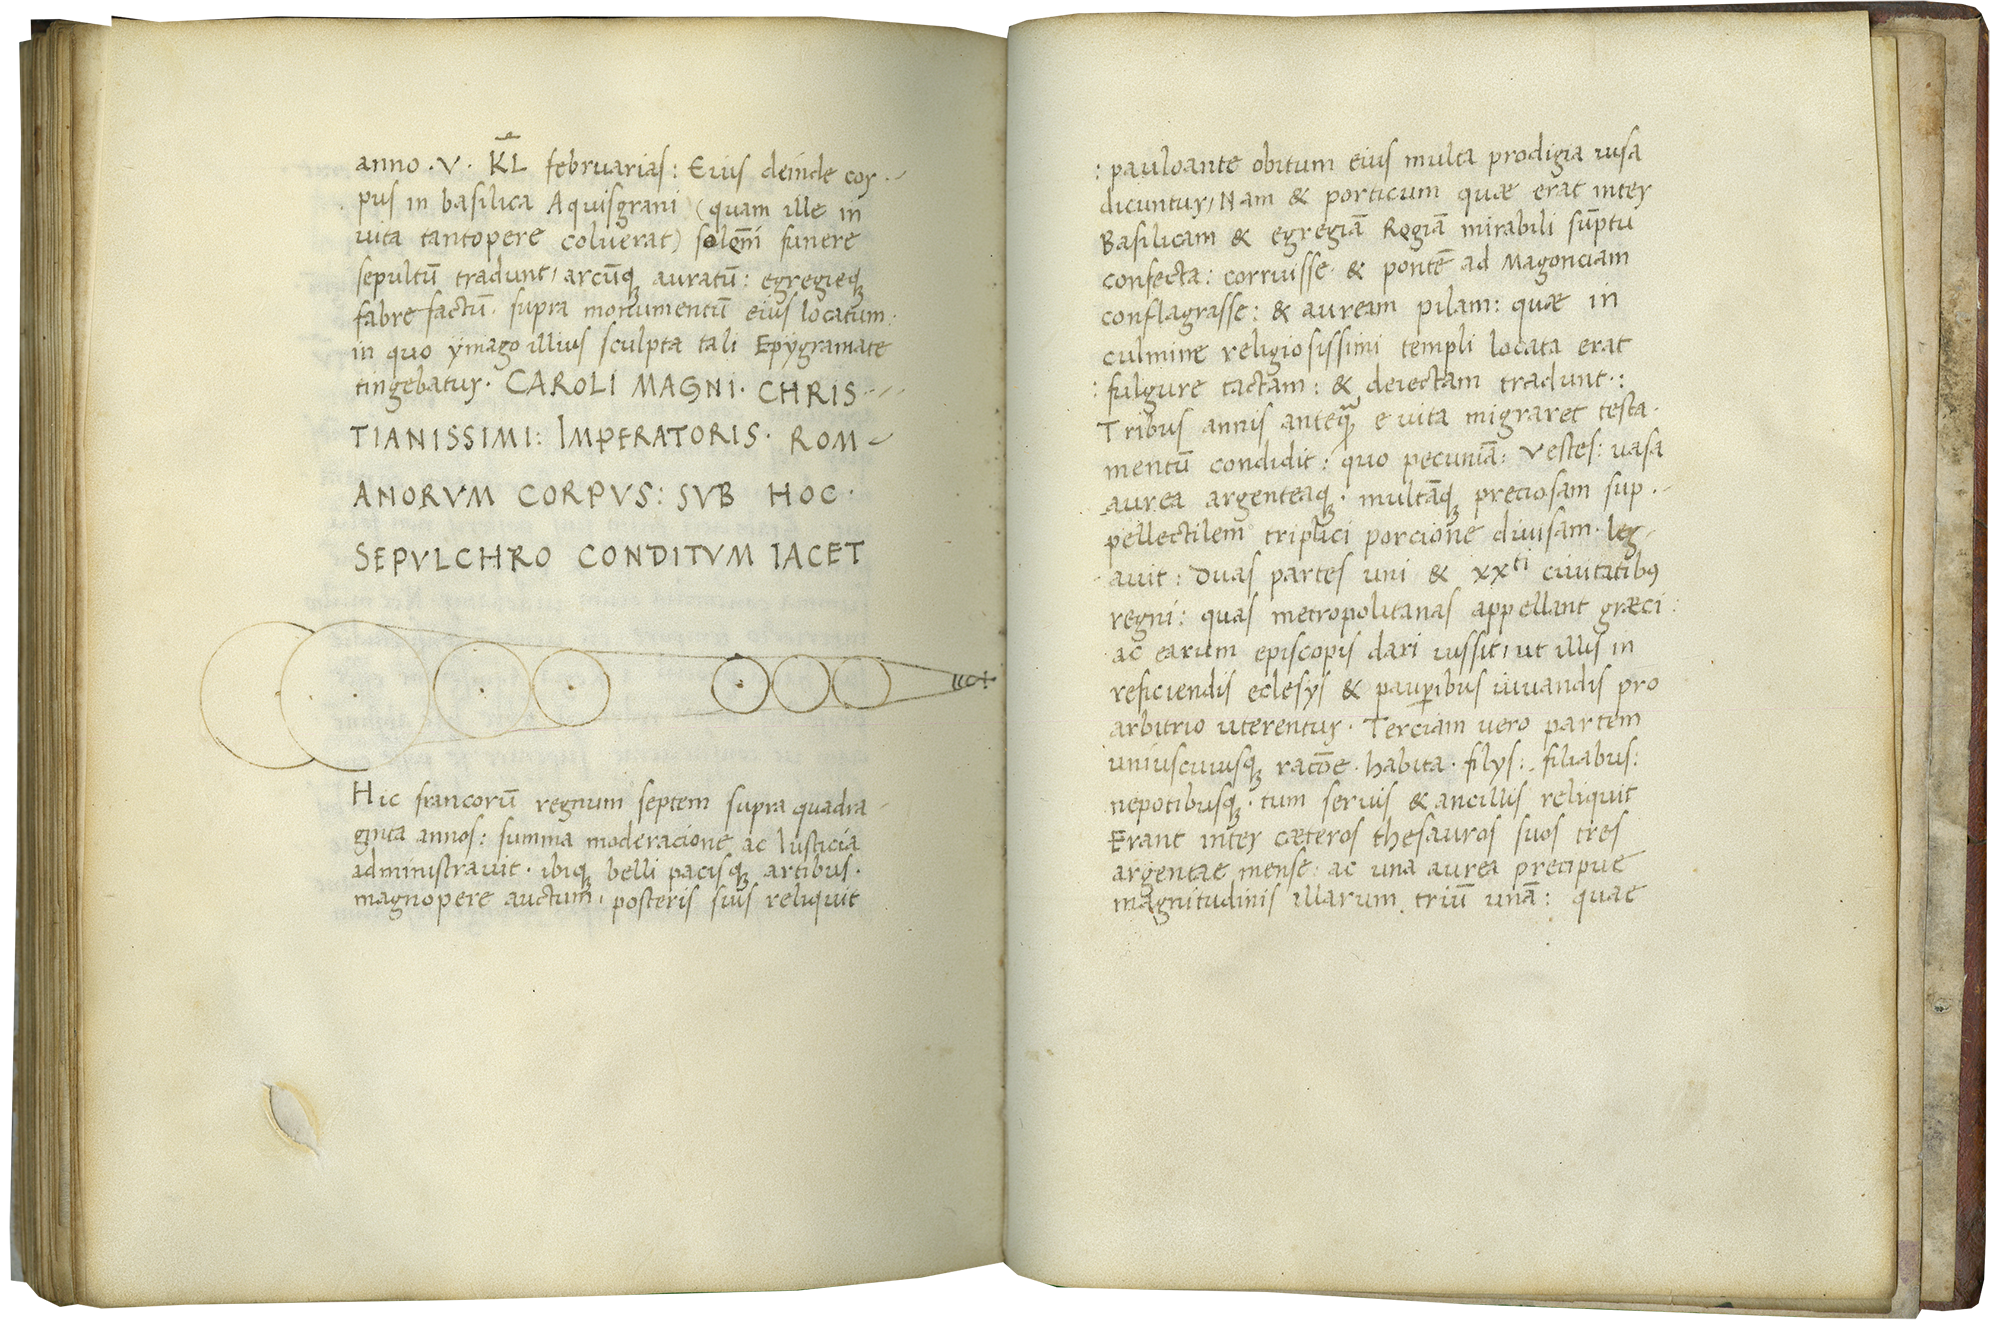 anno · V · KL̄ februarias : Eius deinde cor-
pus in basilica Aquisgrani (quam ille in
uita tantopere coluerat) solēni funere
sepultū tradunt, arcūq; auratū : egregieq;
fabre factū · supra monumentū eius locatum :
in quo ymago illius sculpta tali Epygramate
tingebatur · CAROLI MAGNI · CHRIS-
TIANISSIMI : IMPERATORIS · ROM-
ANORVM CORPVS : SVB HOC ·
SEPVLCHRO CONDITVM IACET
Hic francorū regnum septem supra quadra-
ginta annos : summa moderacione ac Iusticia
administrauit · ibiq; belli pacisq; artibus ·
magnopere auctum, posteris suis reliquit
: pauloante obitum eius multa prodigia uisa
dicuntur, Nam & porticum quae erat inter
Basilicam & egregiā Regiā mirabili sūptu
confecta : corruisse · & pontē ad Magonciam
conflagrasse : & auream pilam : quae in
culmine religiosissimi templi locata erat
: fulgure tactam : & deiectam tradunt · :
Tribus annis anteq̄ e uita migraret testa-
mentū condidit : quo pecuniā : Vestes : uasa
aurea argenteaq; · multāq; preciosam sup-
pellectilem triplici porcione diuisam · leg-
auit : Duas partes uni & xxti ciuitatibus
regni : quas metropolitanas appellant graeci :
ac earum episcopis dari iussit, ut illis in
reficiendis eclesys & pauperibus iuuandis pro
arbitrio uterentur · Terciam uero partem
uniuscuiusq; racōe · habita · filys : filiabus :
nepotibusq; · tum seruis & ancillis reliquit
Erant inter caeteros thesauros suos tres
argentae mense : ac una aurea precipue
magnitudinis illarum triū unā : quae